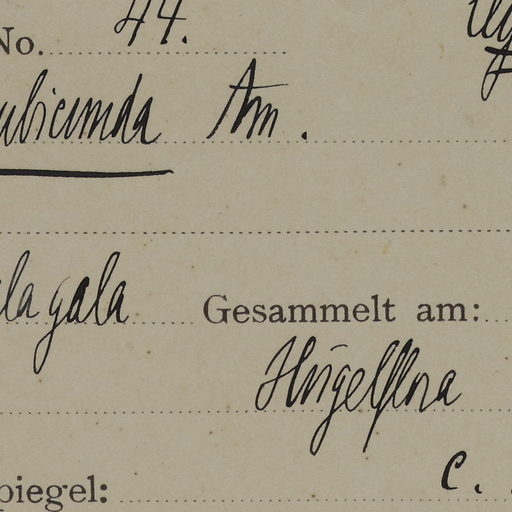 No. 44.
ubicunda Arn.
lagala Gesammelt am:
Hügelflora
piegel: c.